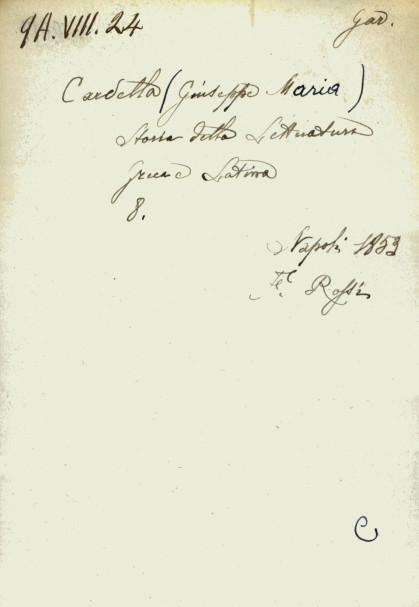 9A. VIII. 24
Gar.
Cardella (Giuseppe Maria)
Storia della Letteratura
Greca e Latina
8.
Napoli 1853
Rossi
C